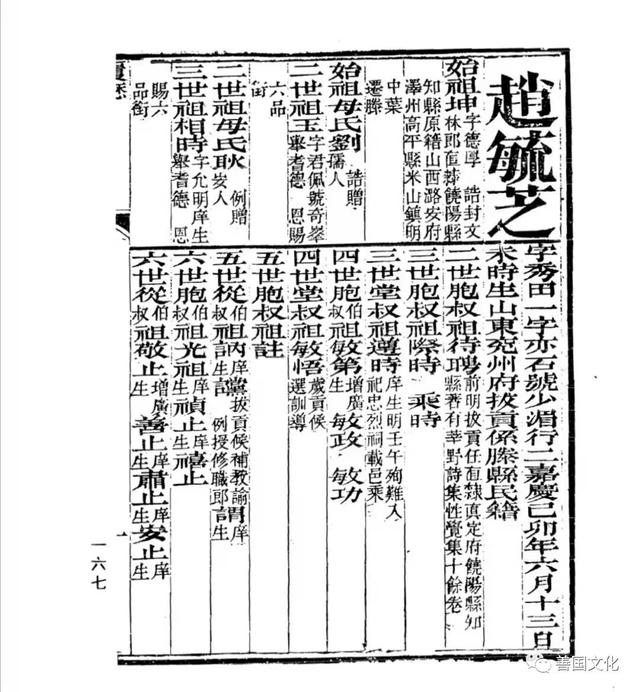 趙毓芝
字秀田一字亦石號少湄行二嘉慶己卯年六月十三日
未時生山東兗州府拔貢係滕縣民籍
始祖坤字德厚 誥封文林郎直隸饒陽縣
知縣原籍山西潞安府澤州高平縣米山鎮明
中葉遷滕
始祖母氏劉誥贈孺人
二世祖玉字君佩號奇峯舉耆德 恩賜
六品銜
二世祖母氏耿例贈安人
三世祖相時字允明庠生舉耆德 恩
賜六品銜
二世胞叔祖待聘前明拔貢任直隸真定府饒陽縣知縣著有莘野詩集性覺集十餘卷
三世胞叔祖際時 乘時
三世堂叔祖遵時庠生明壬午殉難入祀忠烈祠載邑乘
四世胞伯叔祖敏第增廣生 敏政 敏功
四世堂叔祖敏悟歲貢候選訓導
五世胞叔祖註
五世從伯叔祖訥庠生讜拔貢候補教諭例授修職郎謂庠生
六世胞伯叔祖光祖庠生禎止庠生禧止
六世從伯叔祖敬止增廣生善止庠生肅止庠生安止庠生
一
一六七
善国文化